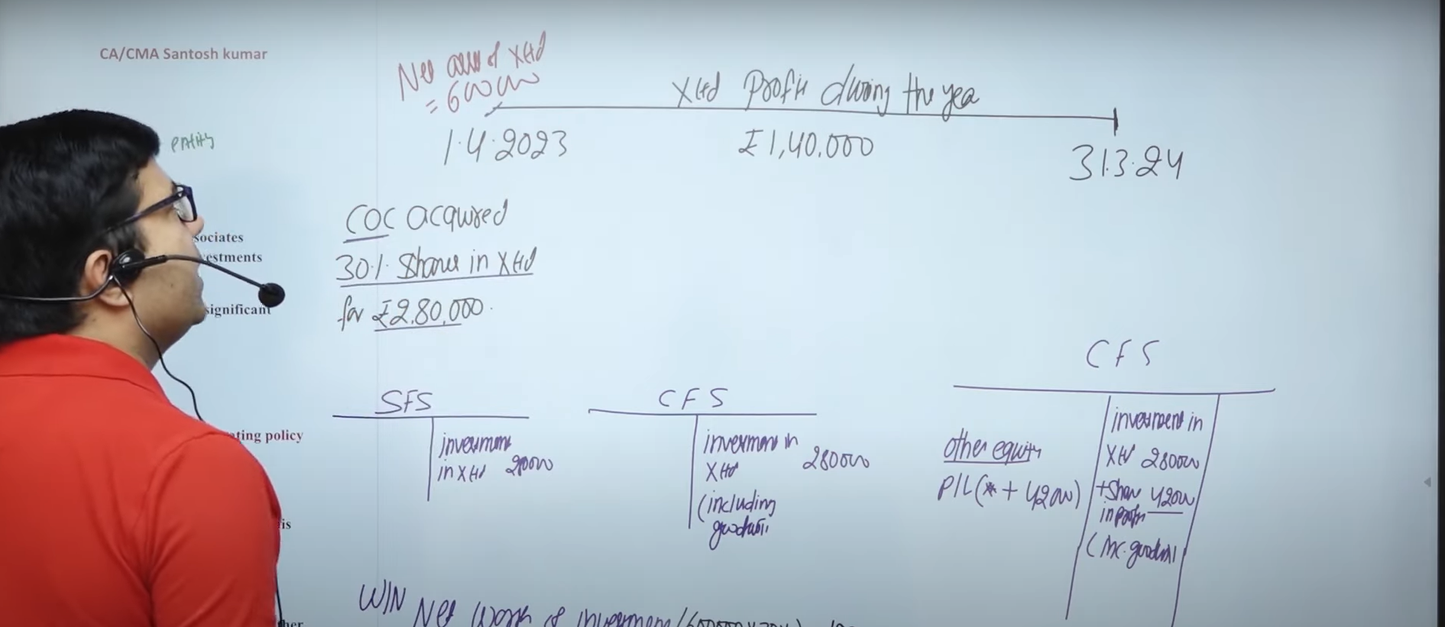 CA/CMA Santosh kumar
entity
sociates
estments
ignificant
ting policy
is
her
Net assets of XLtd
= 600000
XLtd Profit during the year
1.4.2023
₹1,40,000
31.3.24
COC acquired
30% Shares in XLtd
for ₹2,80,000.
SFS
investment
in XLtd
CFS
investment in
XLtd 280000
(including
goodwill
CFS
other equity
P/L (* + 42000)
investment in
XLtd 280000
+ Share 42000
in profit
(Inc. goodwill
W/N Net Worth of investment (600000 x 30%)